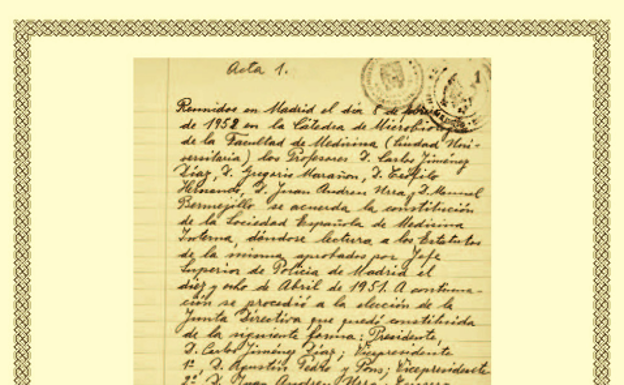 Acta 1.
1
Reunidos en Madrid el día 8 de
de 1952 en la Cátedra de Microbiología
de la Facultad de Medicina (Ciudad Uni-
versitaria) los Profesores D. Carlos Jiménez
Díaz, D. Gregorio Marañon, D. Teófilo
Hernando, D. Juan Andreu Urra y D. Manuel
Bermejillo se acuerda la constitución
de la Sociedad Española de Medicina
Interna, dándose lectura a los Estatutos
de la misma aprobados por Jefe
Superior de Policia de Madrid el
diez y ocho de Abril de 1951. A continua-
ción se procedió a la elección de la
Junta Directiva que quedó constituida
de la siguiente forma: Presidente,
D. Carlos Jiménez Díaz; Vicepresidente
1º, D. Agustín Pedro y Pons; Vicepresidente
2º D. Juan Andreu Urra; Tesorero